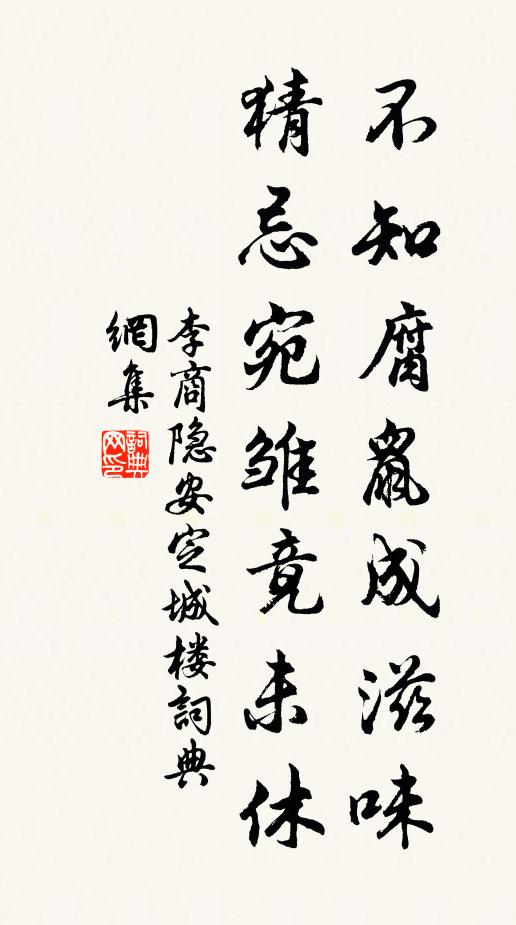 不知腐鼠成滋味
猜忌宛雏竟未休
李商隐安定城楼詞典
網集
詞典网印